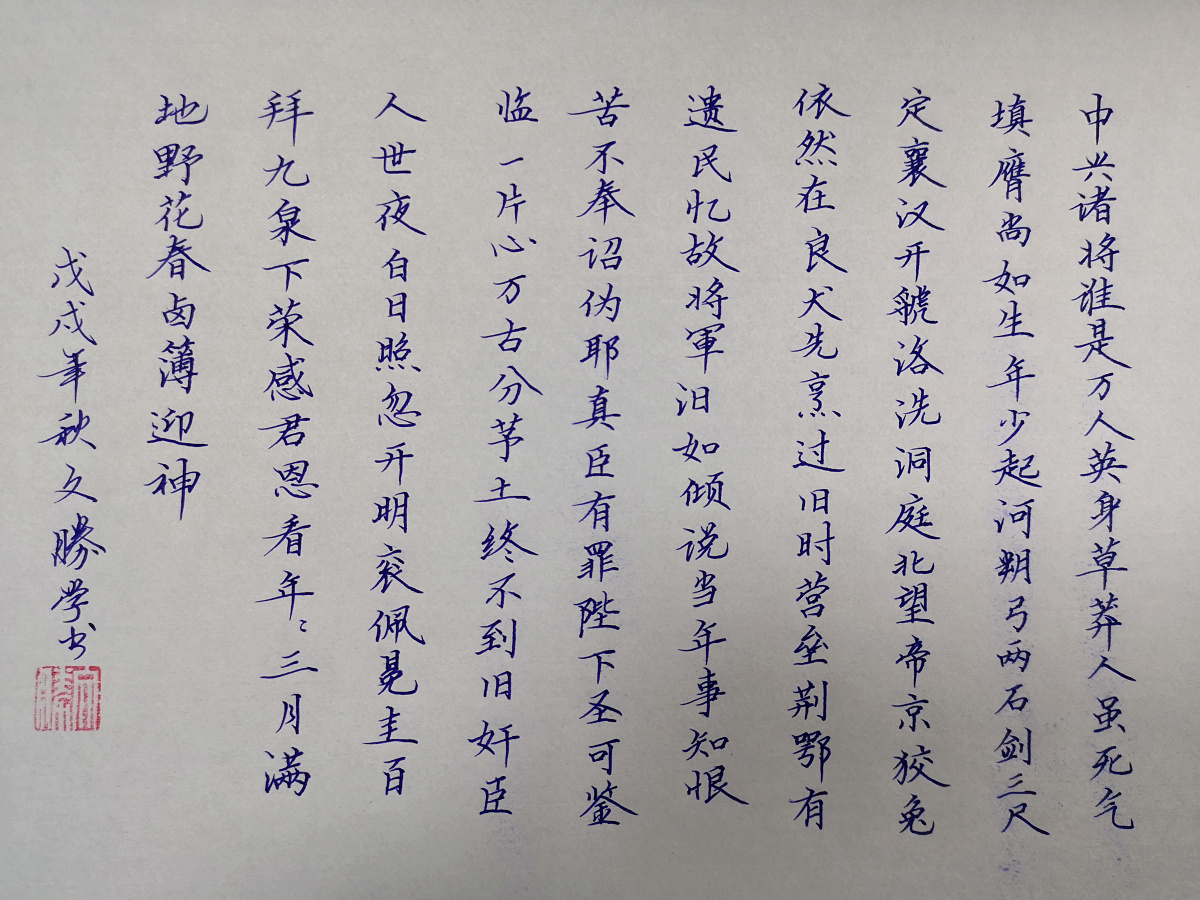 中兴诸将谁是万人英身草莽人虽死气
填膺尚如生年少起河朔弓两石剑三尺
定襄汉开虢洛洗洞庭北望帝京狡兔
依然在良犬先烹过旧时营垒荆鄂有
遗民忆故将軍泪如倾说当年事知恨
苦不奉诏伪耶真臣有罪陛下圣可鉴
临一片心万古分茅土终不到旧奸臣
人世夜白日照忽开明衮佩冕圭百
拜九泉下荣感君恩看年〻三月满
地野花春卤簿迎神
戊戌年秋文勝学书